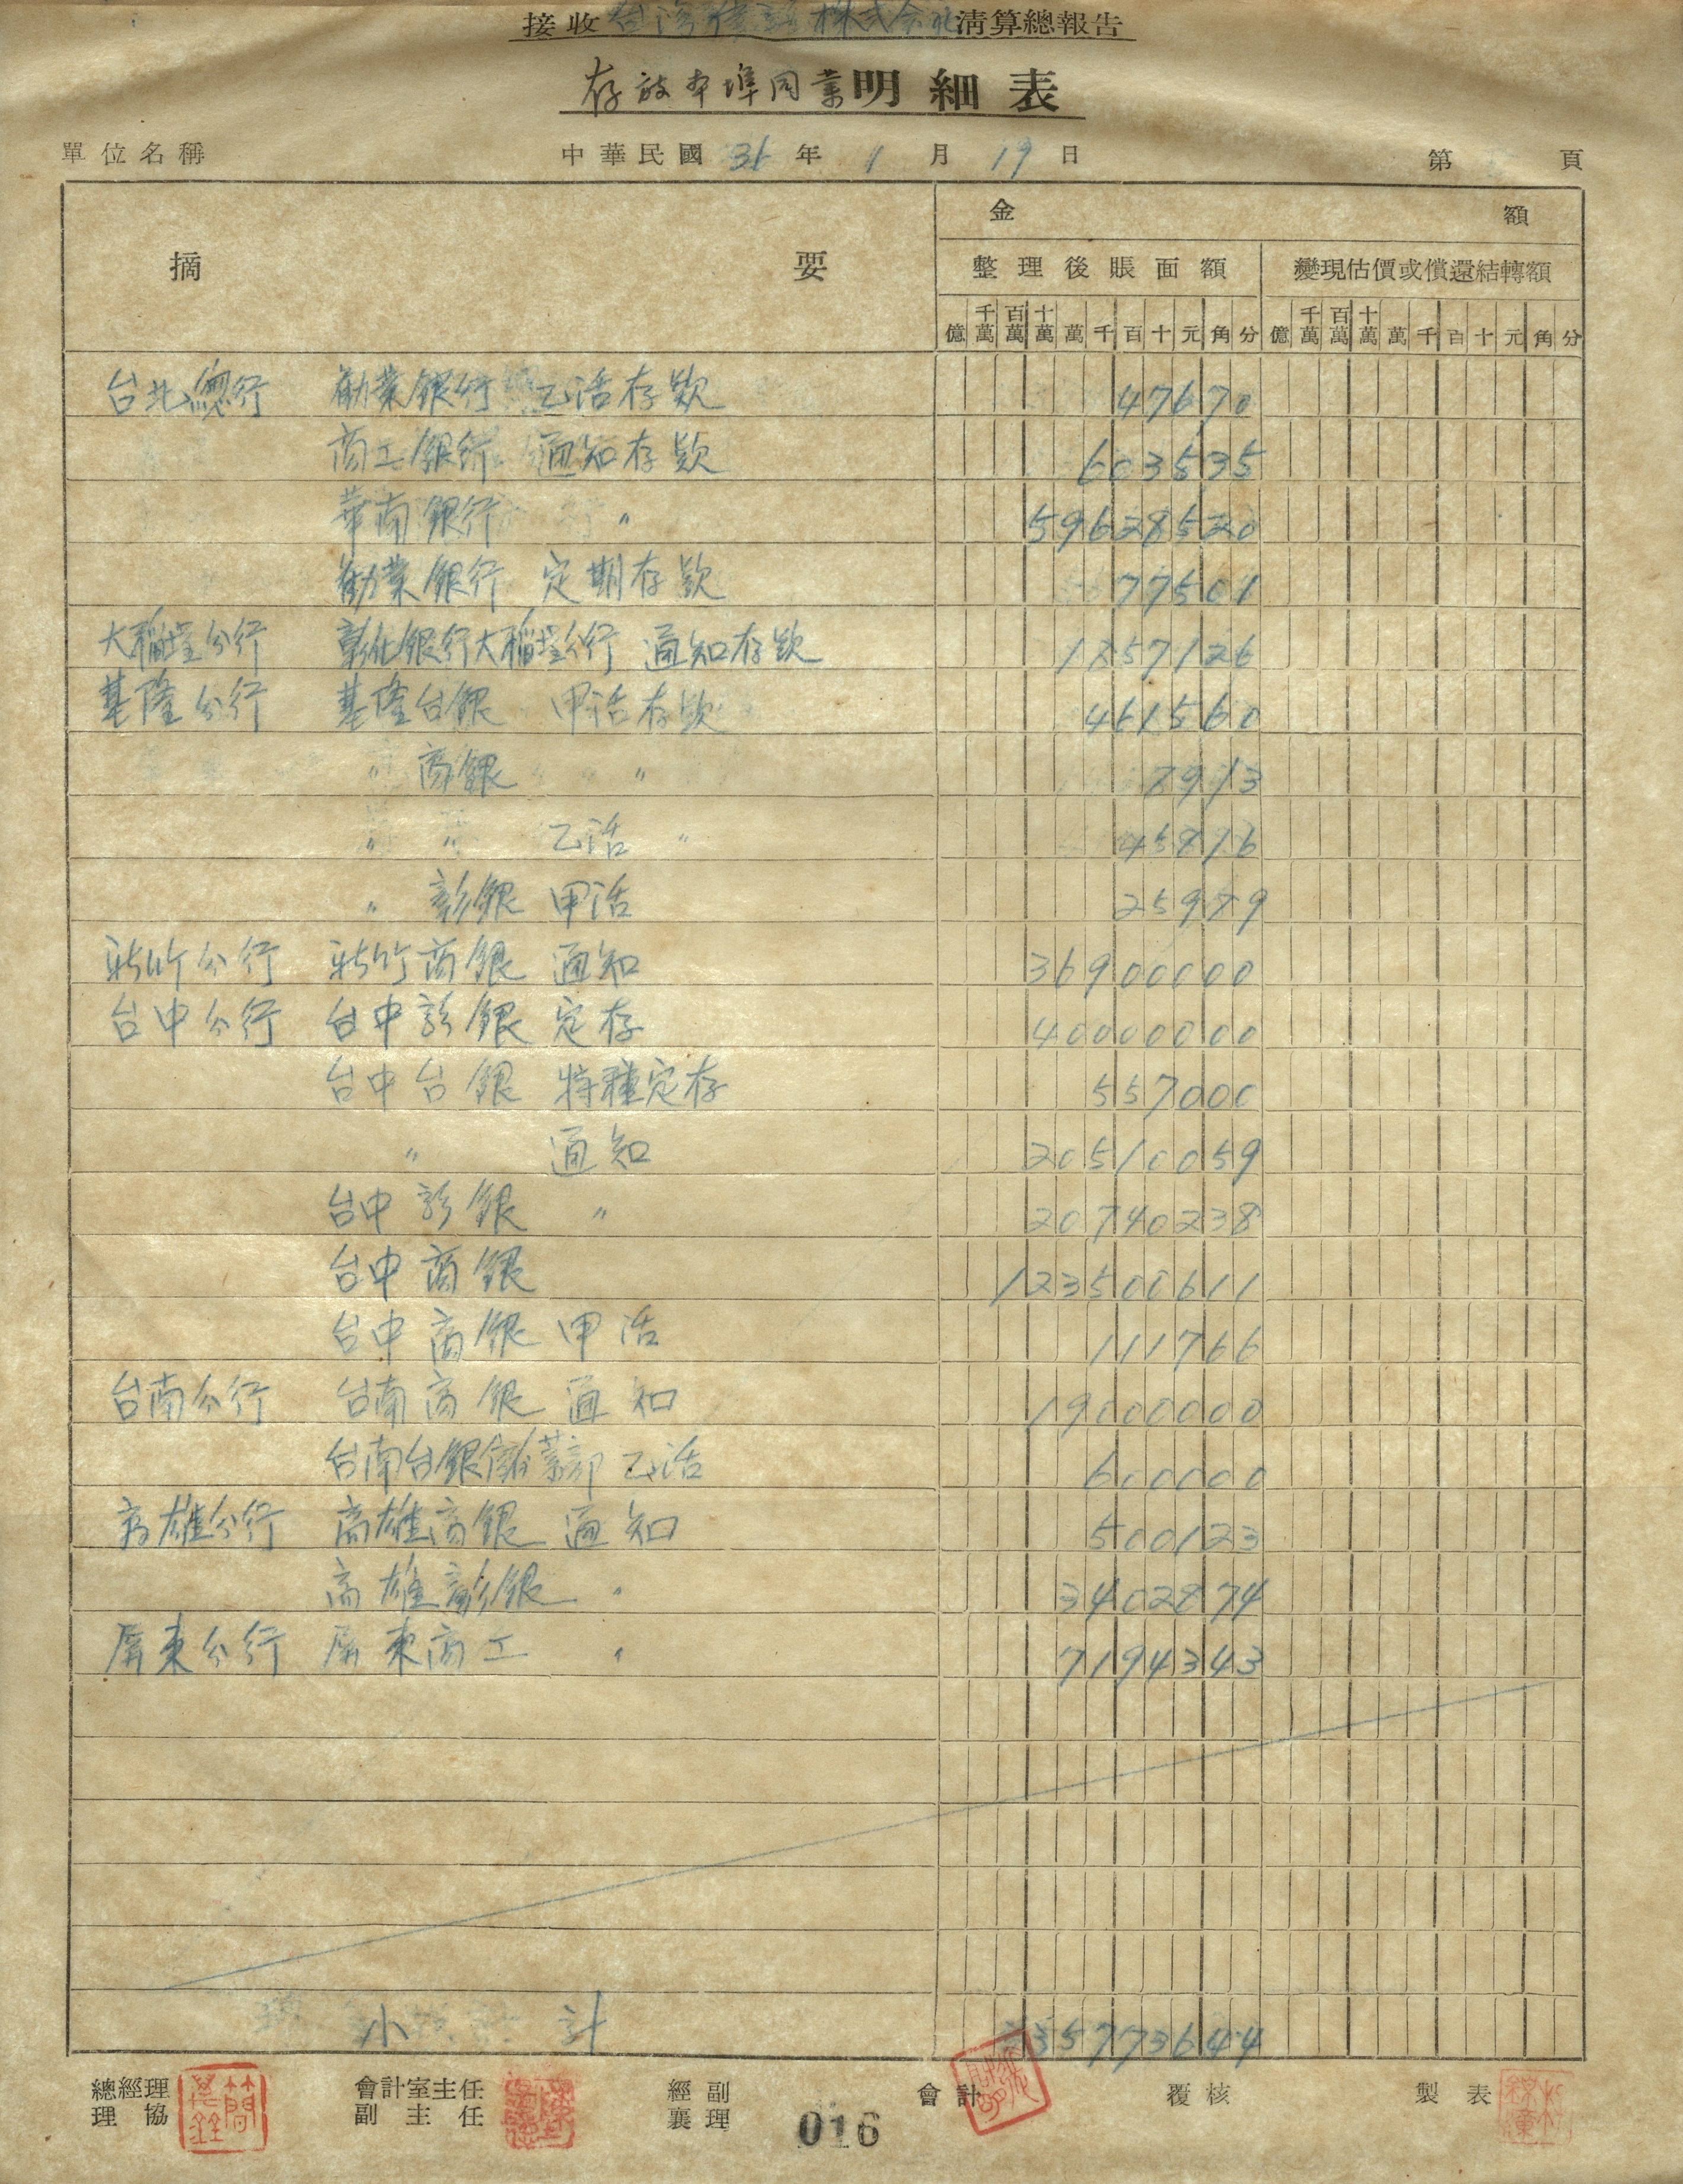 接收台灣信託株式会社清算總報告
存放本埠同業明細表
單位名稱 中華民國 36 年 1 月 19 日 第 頁
摘要 金額
整理後賬面額 變現估價或償還結轉額
億 千萬 百萬 十萬 萬 千 百 十 元 角 分 億 千萬 百萬 十萬 萬 千 百 十 元 角 分
台北總行 勧業銀行 乙活存款 47670
商工銀行 通知存款 603535
華南銀行 〃 59628520
勧業銀行 定期存款 77501
大稲埕分行 彰化銀行大稲埕分行 通知存款 1257126
基隆分行 基隆台銀 甲活存款 461560
〃 商銀 〃 7913
〃 〃 乙活 〃 45876
〃 彰銀 甲活 25979
新竹分行 新竹商銀 通知 36900000
台中分行 台中彰銀 定存 40000000
台中台銀 特種定存 557000
〃 通知 20510059
台中彰銀 〃 20740238
台中商銀 123500611
台中商銀 甲活 111766
台南分行 台南商銀 通知 19000000
台南台銀儲蓄部 乙活 600000
高雄分行 高雄商銀 通知 500123
高雄彰銀 〃 3402874
屏東分行 屏東商工 〃 7194343
小計 335773644
總經理 會計室主任 經副 會計 覆核 製表
協理 副主任 襄理
016